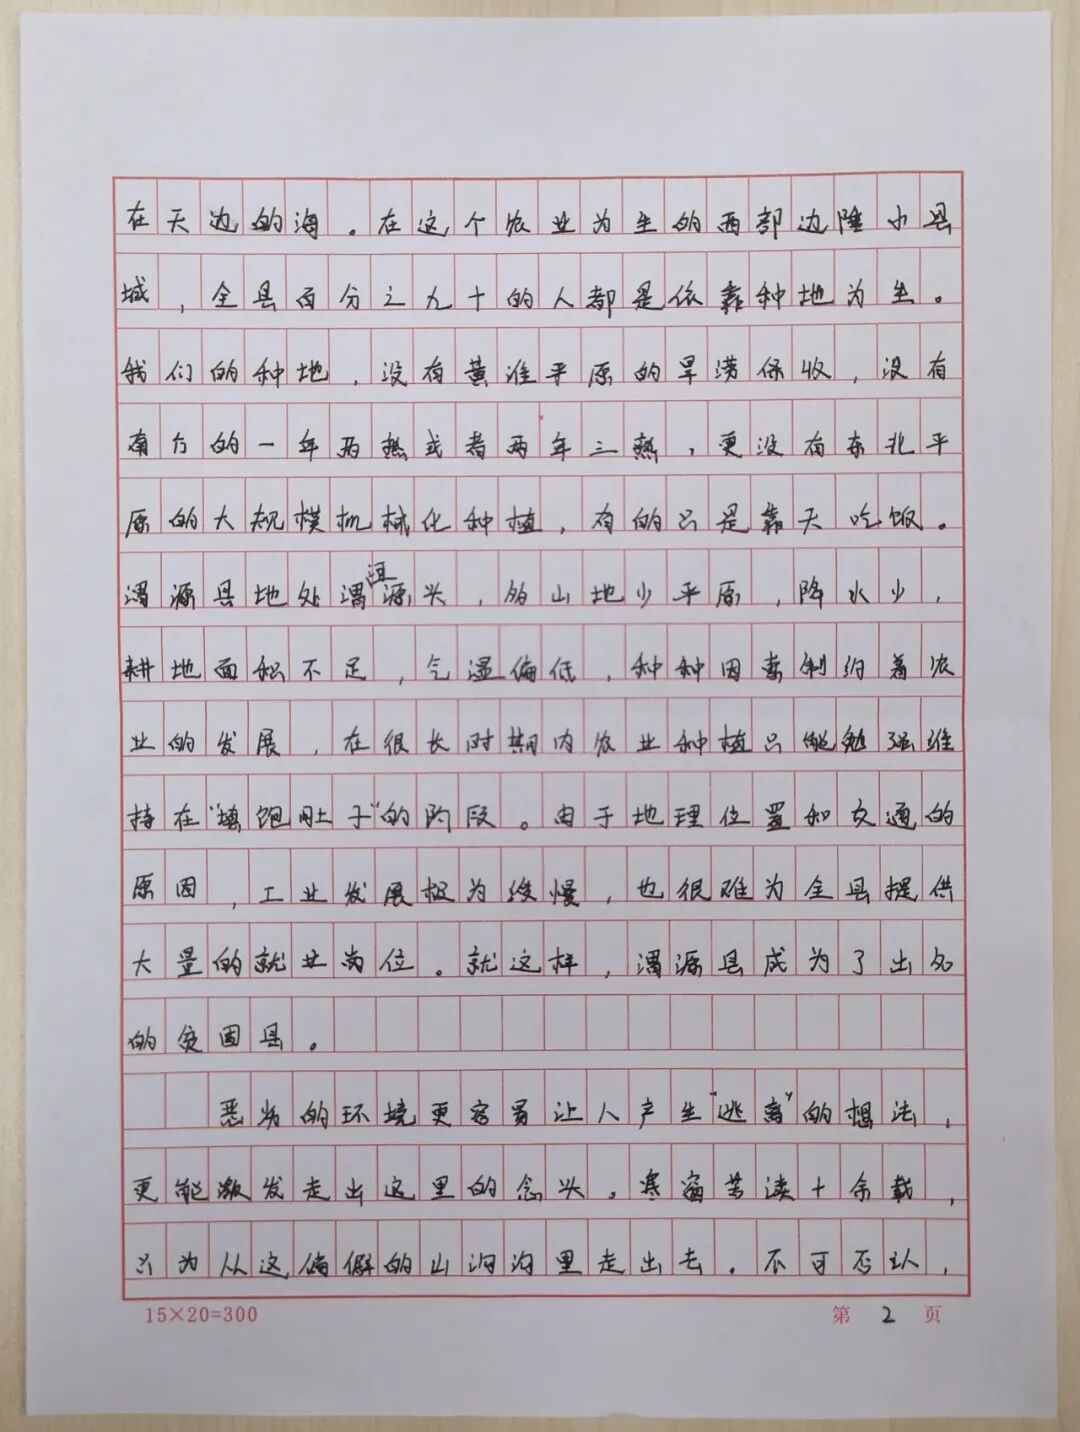 在天边的海。在这个农业为生的西部边陲小县
城，全县百分之九十的人都是依靠种地为生。
我们的种地，没有黄淮平原的旱涝保收，没有
南方的一年两熟或者两年三熟，更没有东北平
原的大规模机械化种植，有的只是靠天吃饭。
渭源县地处渭河源头，多山地少平原，降水少，
耕地面积不足，气温偏低，种种因素制约着农
业的发展，在很长时期内农业种植只能勉强维
持在“填饱肚子”的阶段。由于地理位置和交通的
原因，工业发展极为缓慢，也很难为全县提供
大量的就业岗位。就这样，渭源县成为了出名
的贫困县。
恶劣的环境更容易让人产生“逃离”的想法，
更能激发走出这里的念头。寒窗苦读十余载，
只为从这偏僻的山沟沟里走出去。不可否认，
15×20=300
第 2 页